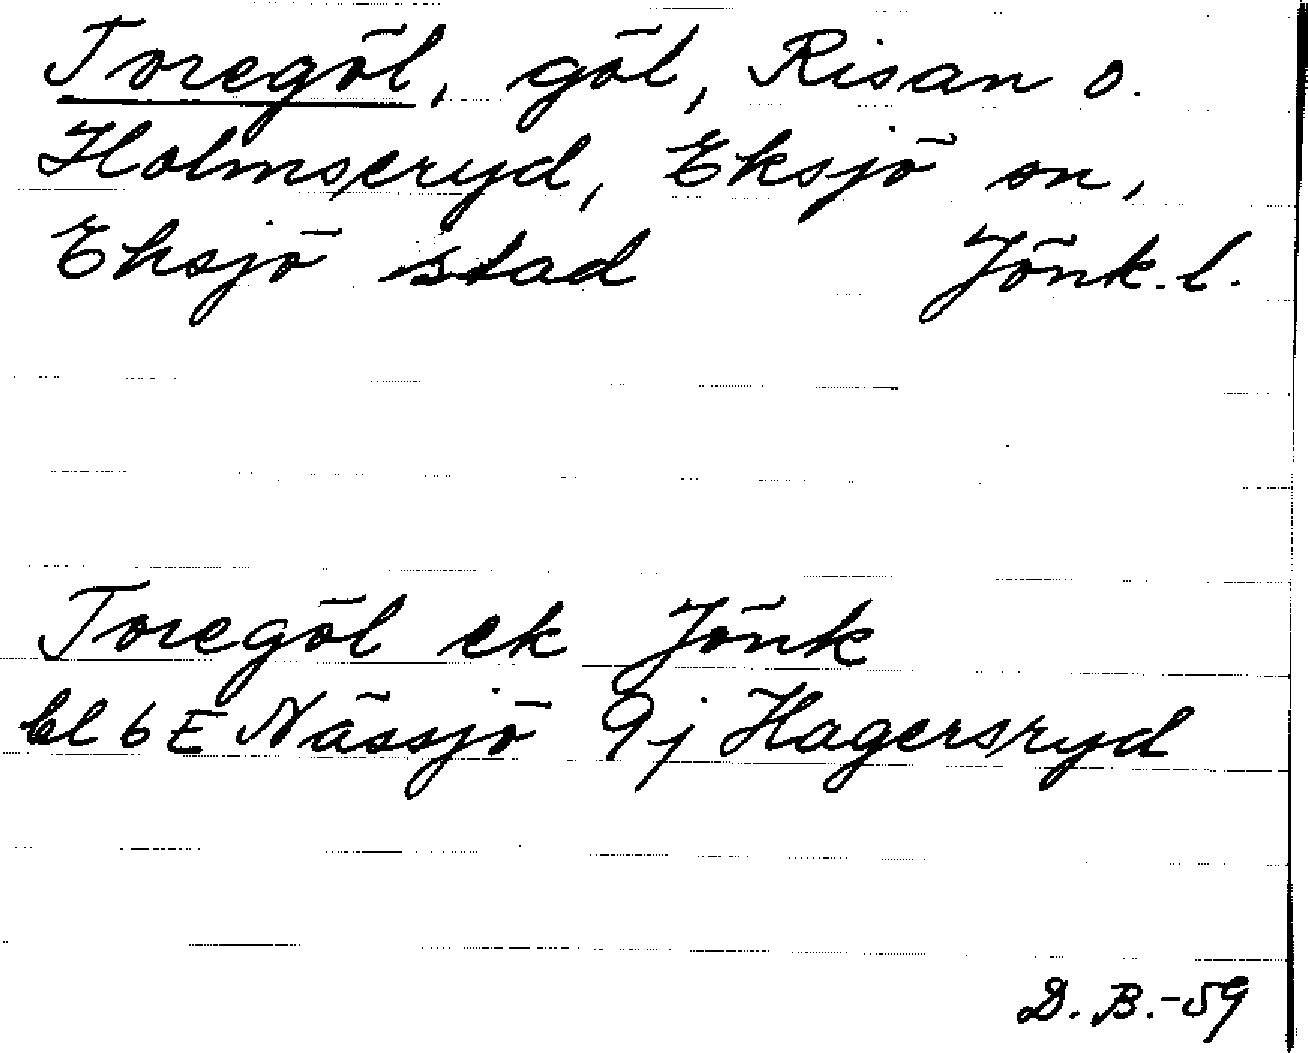 Toregöl, göl, Risan o.
Holmseryd, Eksjö sn,
Eksjö stad Jönk. l.
Toregöl ek Jönk
bl 6E Nässjö 9j Hagersryd
D. B. -59